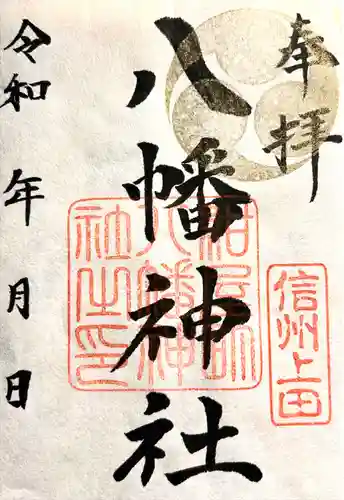 奉拝
信州上田
八幡神社
紺屋町
八幡神
社之印
令和 年 月 日